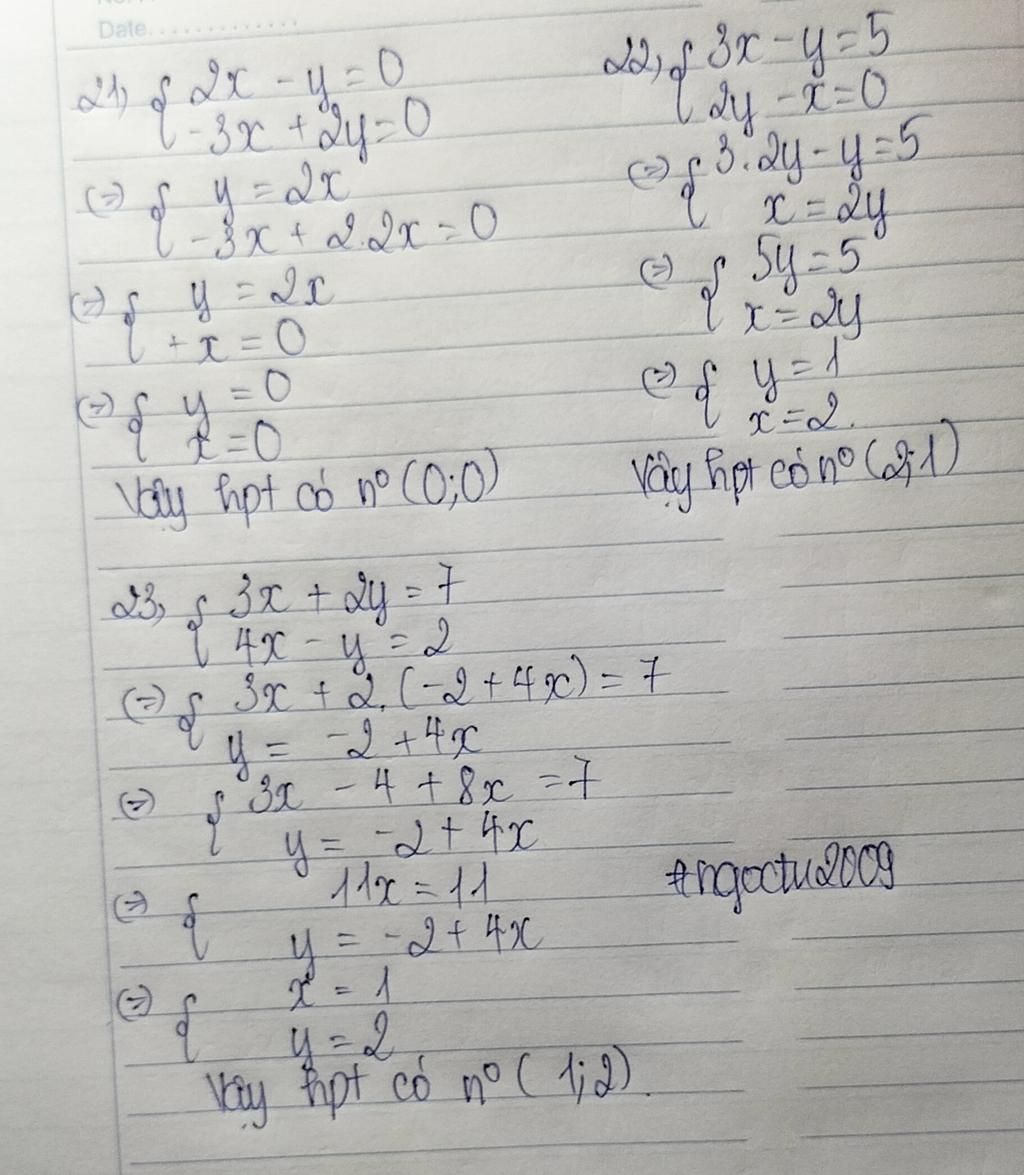 Date..............
21, { 2x - y = 0
-3x + 2y = 0
(=) { y = 2x
-3x + 2.2x = 0
(=) { y = 2x
+ x = 0
(=) { y = 0
x = 0
Vậy hpt có n° (0;0)
22, { 3x - y = 5
2y - x = 0
(=) { 3.2y - y = 5
x = 2y
(=) { 5y = 5
x = 2y
(=) { y = 1
x = 2.
Vậy hpt có n° (2;1)
23, { 3x + 2y = 7
4x - y = 2
(=) { 3x + 2.(-2 + 4x) = 7
y = -2 + 4x
(=) { 3x - 4 + 8x = 7
y = -2 + 4x
(=) { 11x = 11
y = -2 + 4x
(=) { x = 1
y = 2
Vậy hpt có n° (1;2).
#ngoctu2009